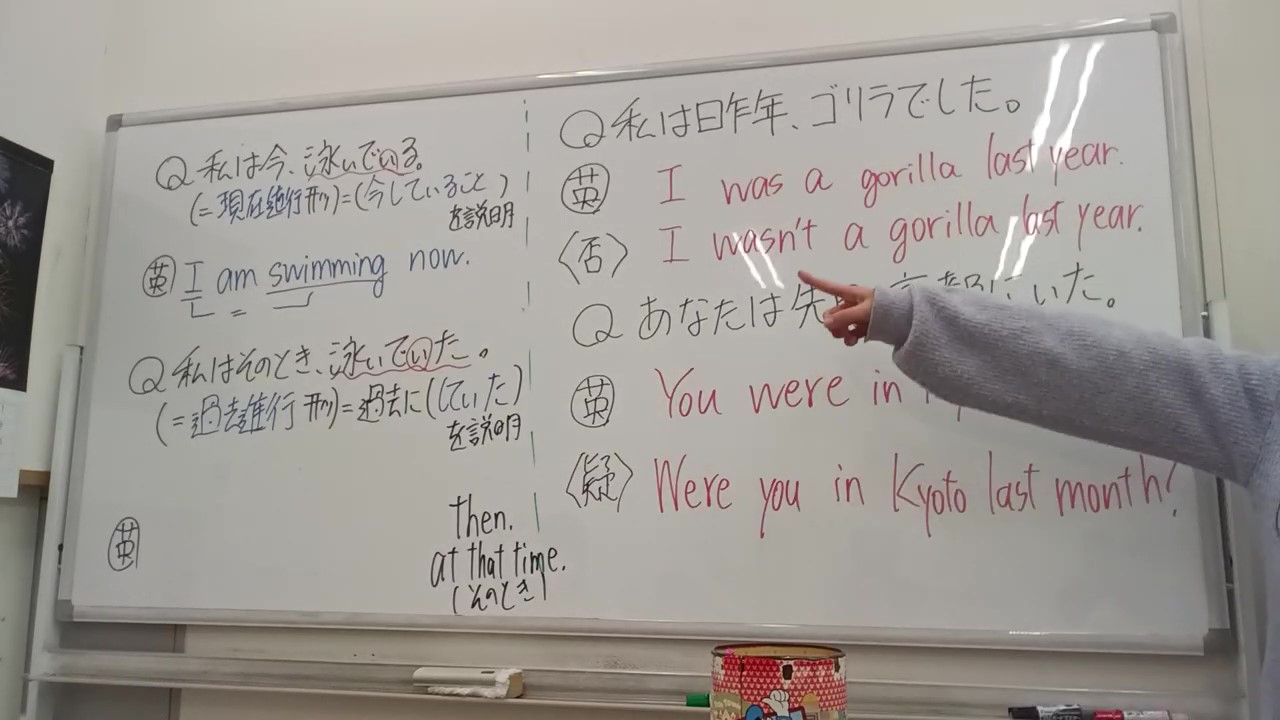 Q 私は今、泳いでいる。
(=現在進行形)=(今していること)
を説明
英 I am swimming now.
Q 私はそのとき、泳いでいた。
(=過去進行形)=過去に(していた)
を説明
英
then.
at that time.
(そのとき)
Q 私は昨年、ゴリラでした。
英 I was a gorilla last year.
〈否〉 I wasn't a gorilla last year.
Q あなたは先 京都にいた。
英 You were in
〈疑〉 Were you in Kyoto last month?